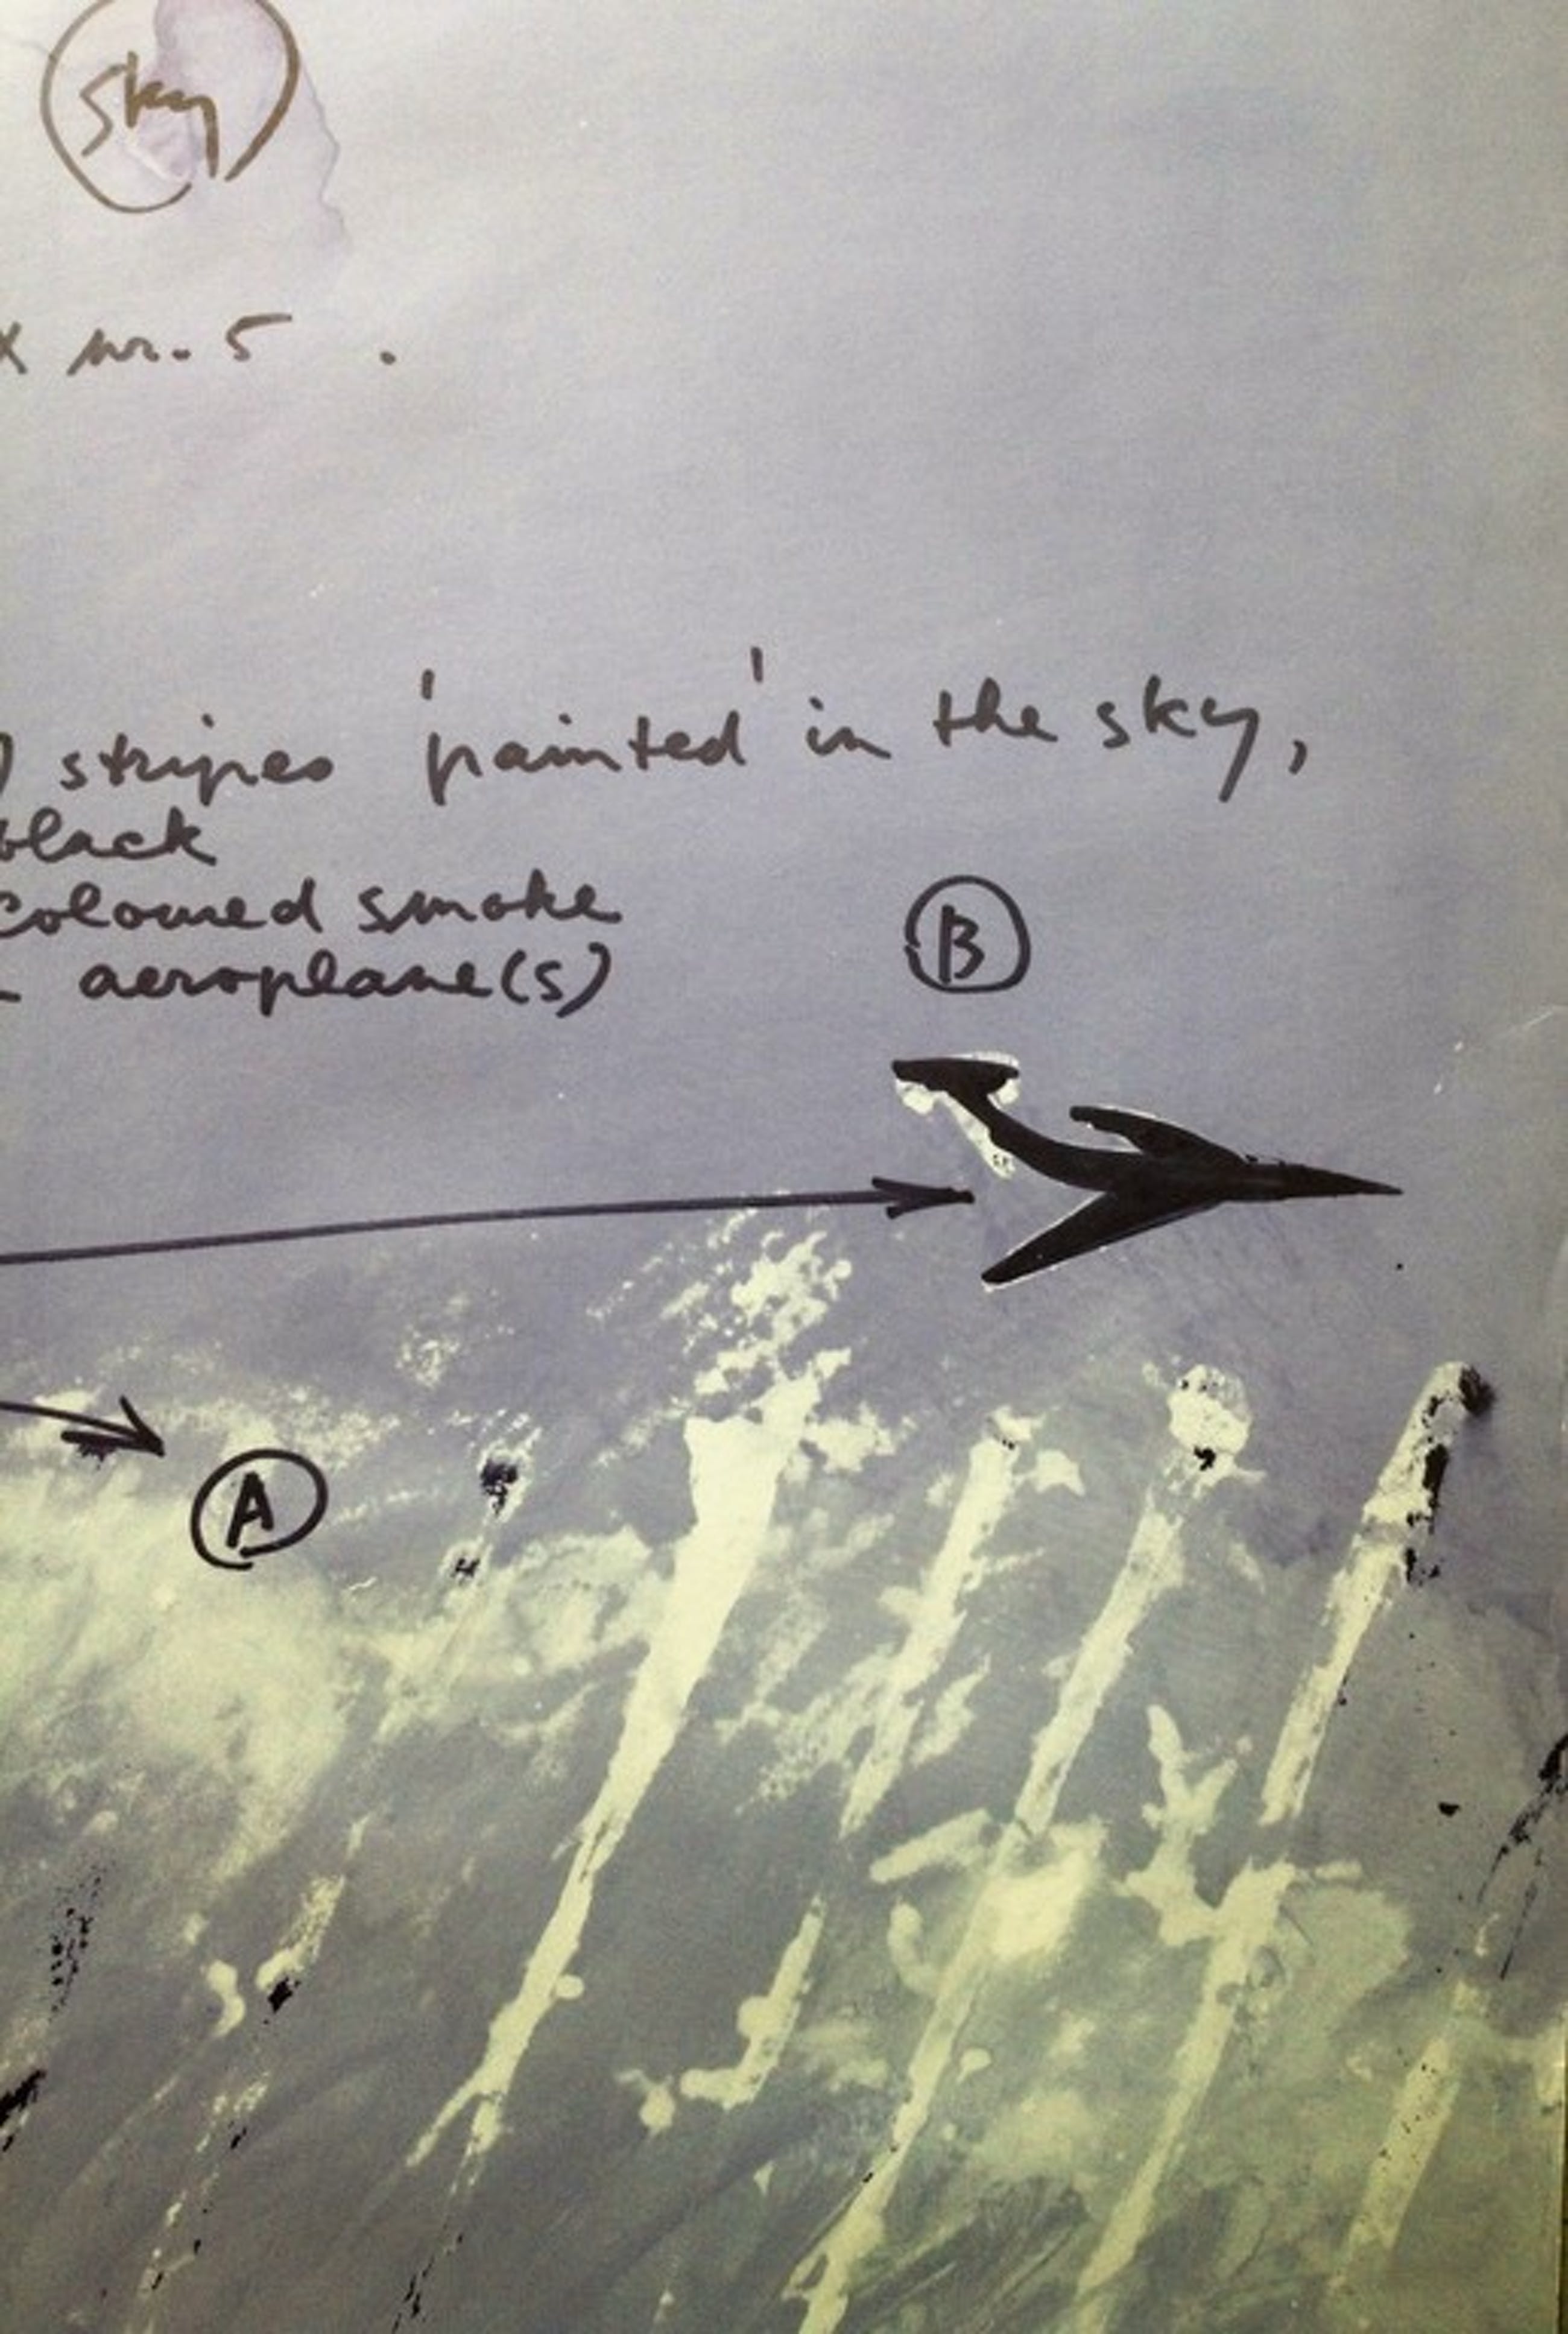 sky
x nr. 5 .
) stripes 'painted' in the sky,
black
coloured smoke
aeroplane(s)
B
A